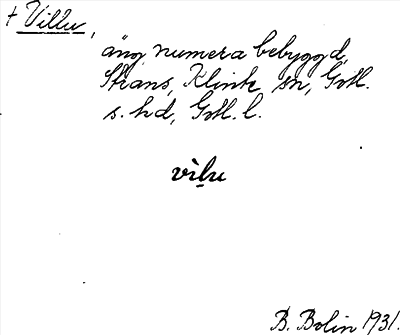 † Villu,
äng, numera bebyggd,
Strans, Klinte sn, Gotl.
s. hd, Gotl. l.
vìlu
B. Bolin 1931.